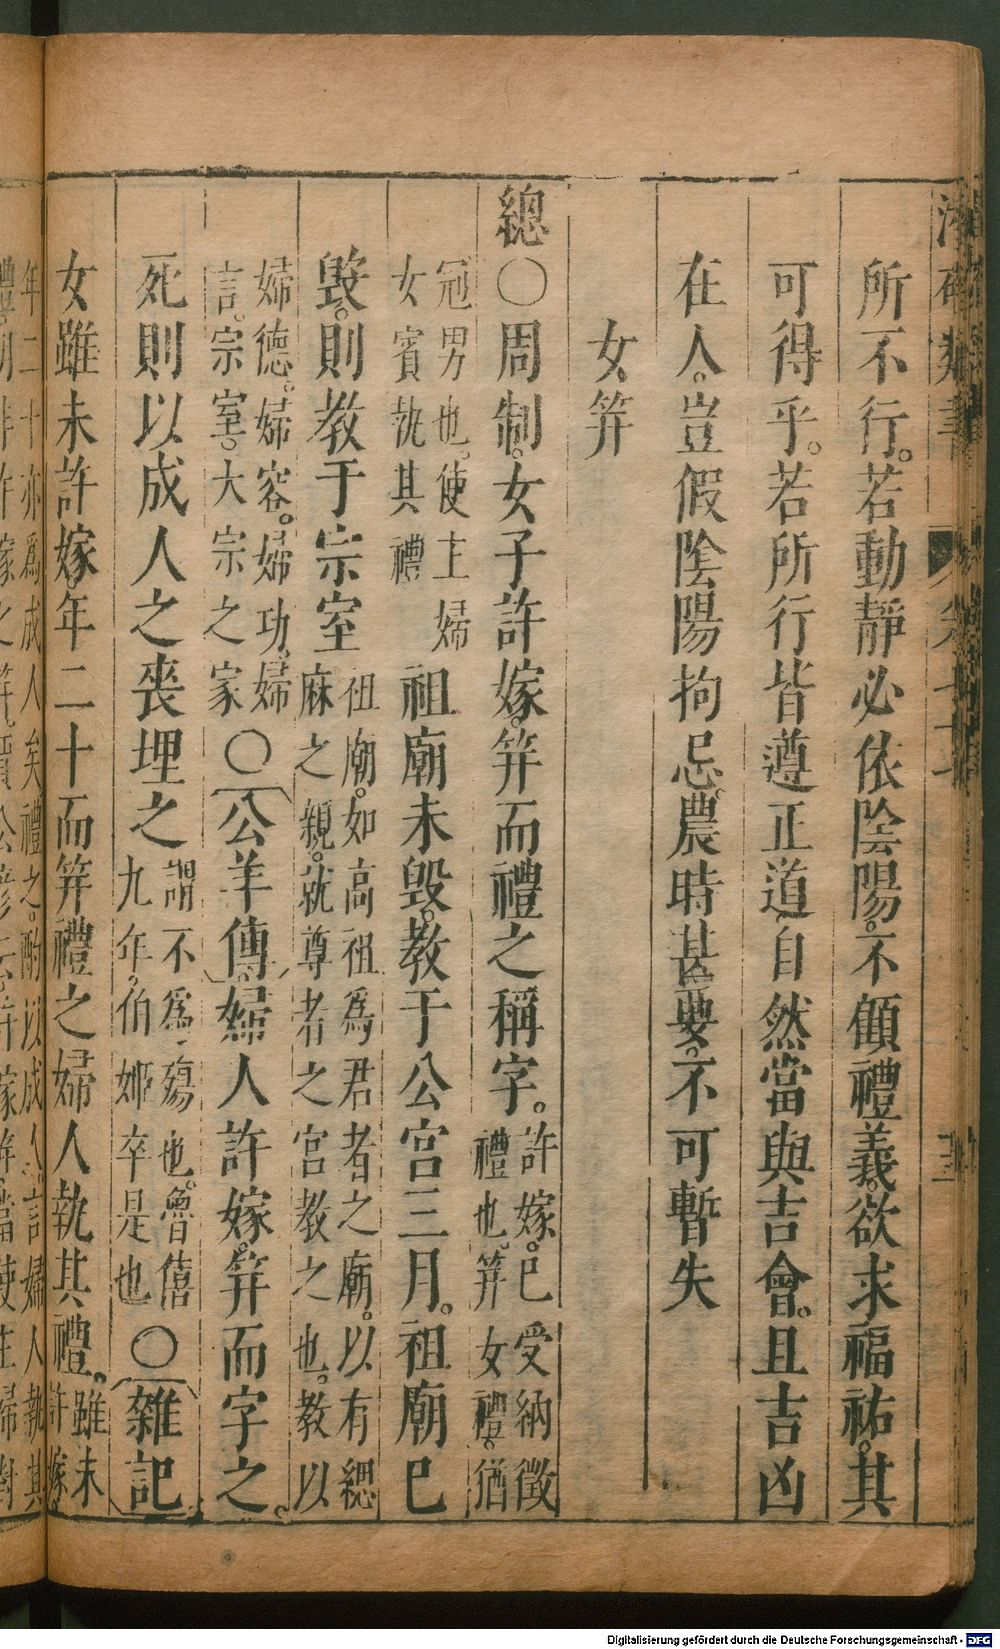 所不行。若動靜必依陰陽。不顧禮義。欲求福祐。其
可得乎。若所行皆遵正道。自然當與吉會。且吉凶
在人。豈假陰陽拘忌。農時甚要。不可暫失
女筓
總〇周制。女子許嫁。筓而禮之稱字。許嫁。已受納徵
禮也。筓女禮。猶
冠男也。使主婦
女賓執其禮
祖廟未毀。教于公宮三月。祖廟已
毀。則教于宗室
祖廟。如高祖爲君者之廟。以有緦
麻之親。就尊者之宮教之也。教以
婦德。婦容。婦功。婦
言。宗室。大宗之家
〇公羊傳。婦人許嫁。筓而字之。
死則以成人之喪埋之
謂不爲殤也。魯僖
九年。伯姬卒是也
〇雜記
女雖未許嫁年二十而筓禮之婦人執其禮。
雖未
許嫁。
年二十亦爲成人矣禮之。酌以成人。言婦人執其
Digitalisierung gefördert durch die Deutsche Forschungsgemeinschaft - DFG